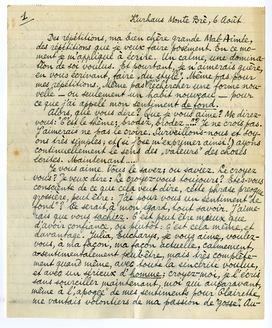 1.
Kurhaus Monte Brè, 6 Août
Des répétitions, ma bien chère grande Mal-Peinte,
des répétitions que je veux faire posément. En ce mo-
ment je m'applique à écrire. Un calme, une domina-
tion de soi voulus. Et pourtant, je n'aimerais guère,
en vous écrivant, faire "du style". Même pas pour
mes répétitions. Même pas rechercher une forme nou-
velle — ou seulement un habit nouveau — pour
ce que j'appelle mon sentiment de fond.
Alors, que vous dire? que je vous aime? Me direz-
vous: "Tu te bernes, Binet," ? Je ne crois pas.
J'aimerais ne pas le croire. Surveillons-nous et soy-
ons très simples; et (si j'ose m'exprimer ainsi) ayons
continuellement le sens des "valeurs" des choses
écrites. Maintenant...
Je vous aime. Vous le savez ou savez. Le croyez
vous? Je veux dire: le croyez-vous toujours? Etes-vous
consciente de ce que cela veut dire, cette phrase presque
grossière, peut-être: J'ai pour vous un sentiment de
fond? Ce serait, à mon sens, tout savoir. J'aime-
rais que vous sachiez. C'est peut-être mieux que
d'avoir confiance, ou plutôt: c'est cela même, et
davantage. Julia, je vous aime, voulez-
vous, à ma façon, ma façon actuelle, calmement,
assentimentalement peut-être, mais très complète-
ment quand même, avec toute la sincérité voulue
et avec un sérieux d'homme; croyez-moi, je l'écris
sans sourciller maintenant, moi qui auparavant,
même à l'apogée de mes sentiments pour Clairette,
me vantais volontiers de ma passion de "gosse". Au-